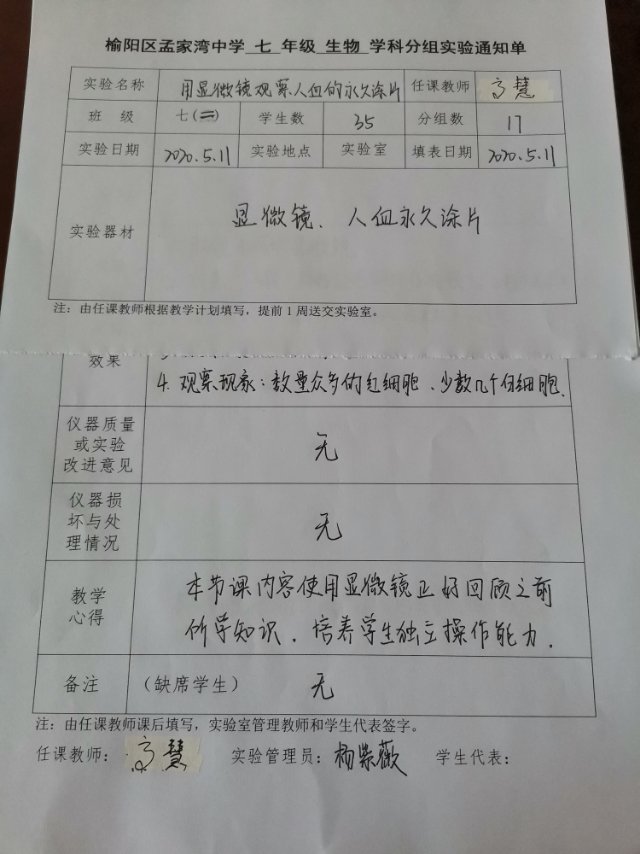 榆阳区孟家湾中学 七 年级 生物 学科分组实验通知单
实验名称 用显微镜观察人血的永久涂片 任课教师 高慧
班 级 七(二) 学生数 35 分组数 17
实验日期 2020.5.11 实验地点 实验室 填表日期 2020.5.11
实验器材 显微镜、人血永久涂片
注：由任课教师根据教学计划填写，提前1周送交实验室。
效果
4. 观察现象：数量众多的红细胞、少数几个白细胞、
仪器质量
或实验
改进意见
无
仪器损
坏与处
理情况
无
教学
心得
本节课内容使用显微镜正好回顾之前
所学知识．培养学生独立操作能力．
备注 （缺席学生） 无
注：由任课教师课后填写，实验室管理教师和学生代表签字。
任课教师：高慧 实验管理员：杨紫薇 学生代表：